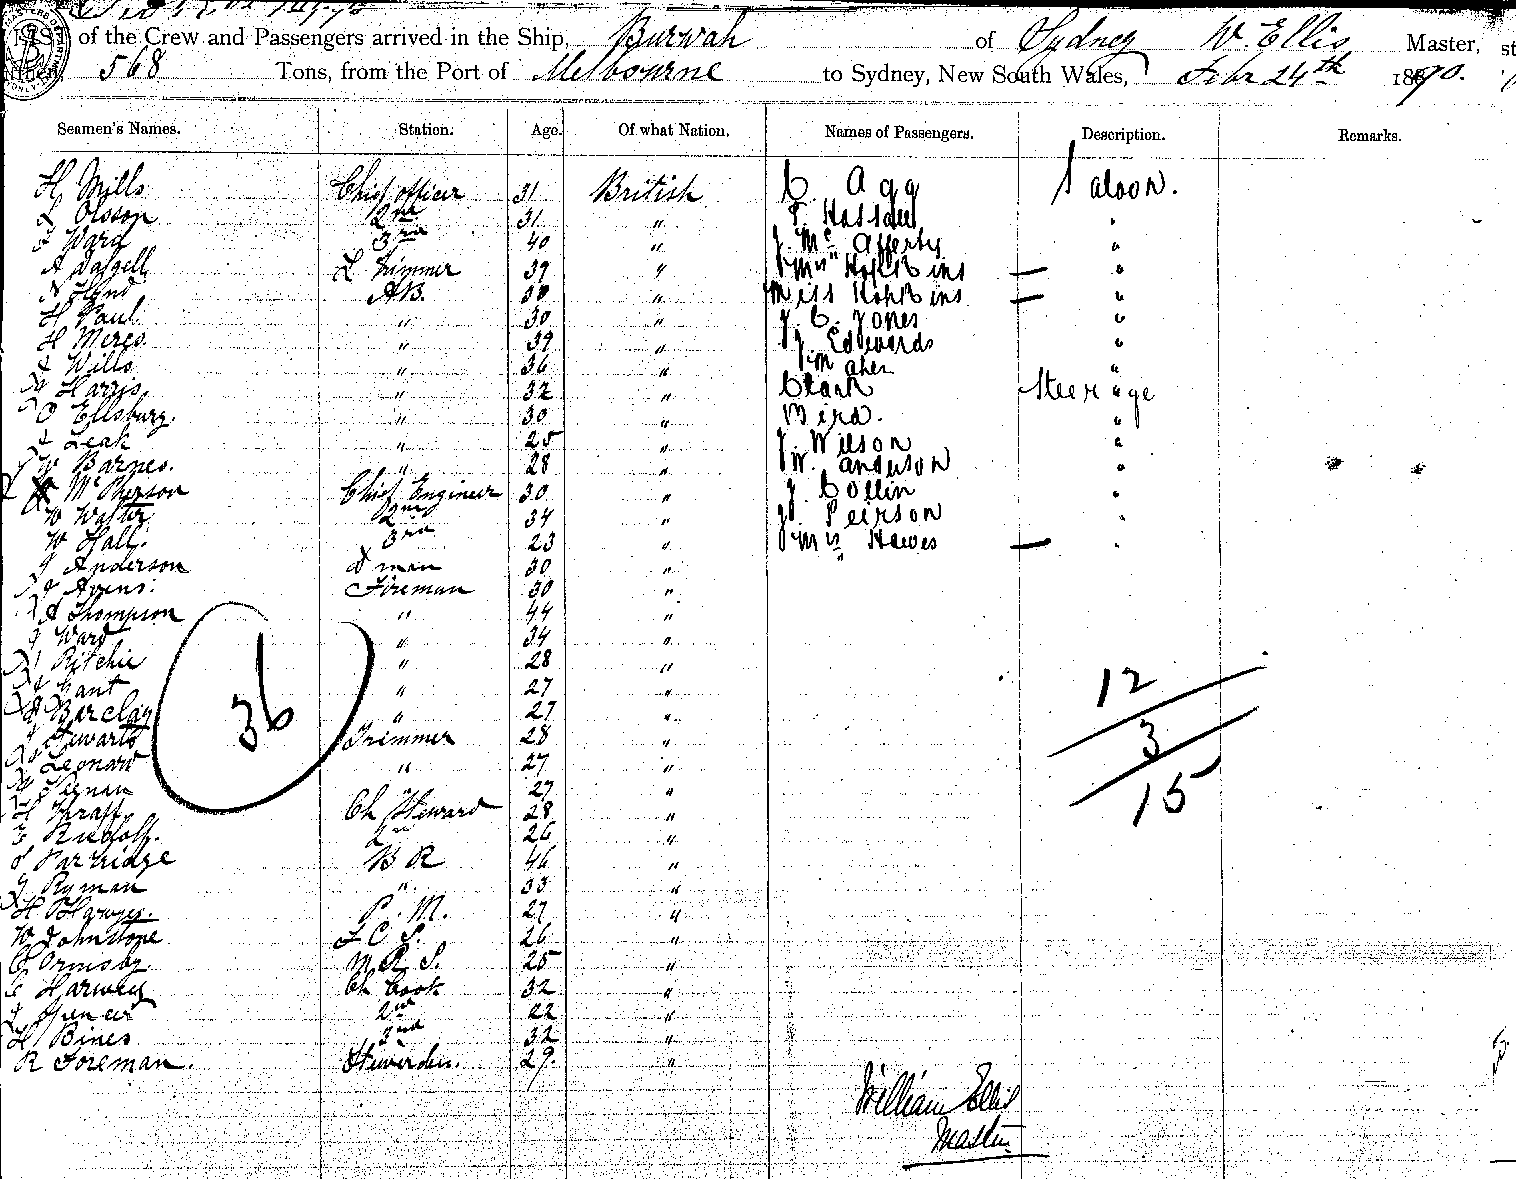 LIST of the Crew and Passengers arrived in the Ship, Burwah of Sydney W. Ellis Master,
568 Tons, from the Port of Melbourne to Sydney, New South Wales, Febr 24th 1890.
Seamen's Names. Station. Age. Of what Nation. Names of Passengers. Description. Remarks.
H Mills Chief officer 31 British C. Agg Saloon.
Olsson 2nd 31 " "
Ward 3rd 40 " J. Mc Afferty "
A Dalgell L Trimmer 39 " Mrs Hopkins — "
Hynd A.B. 30 " Miss Hopkins — "
H Paul " 30 " J. C. Jones "
H Meres " 39 " J. Edwards "
Wills " 36 " Maher "
Harris " 32 " Clark Steerage
O Ellsburg. " 30 " Bird. "
Leak " 25 " J. Wilson "
W Barnes. " 28 " W. Anderson "
McPherson Chief Engineer 30 " J. Collin "
W Walter 2nd 34 " J. Peirson "
W Hall. 3rd 23 " Mrs Hawes — "
J Anderson D man 30 "
Avens. Fireman 30 "
A Thompson " 44 "
J Ward " 34 "
Ritchie " 28 "
Cant " 27 "
Barclay " 27 "
Stewart Trimmer 28 "
Leonard " 27 "
" 27 "
H Ch Steward 28 "
Rudolf. 2nd 26 "
Parridge B R 46 "
J Ryman " 33 "
H P. M. 27 "
W Johnstone F C S. 26 "
C Ormsby M R S. 25 "
Harvey Ch Cook 32 "
J Spencer 2nd 22 "
H Bines 3rd 32 "
R Foreman. 29. "
36
12
3
15
William Ellis
Master